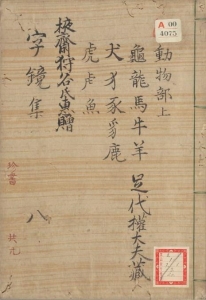 A 00
4075
動物部上
龜龍馬牛羊
足代権大夫藏
犬犭豕豸鹿
虎虍魚
掖齋狩谷氏惠贈
字鏡集
八